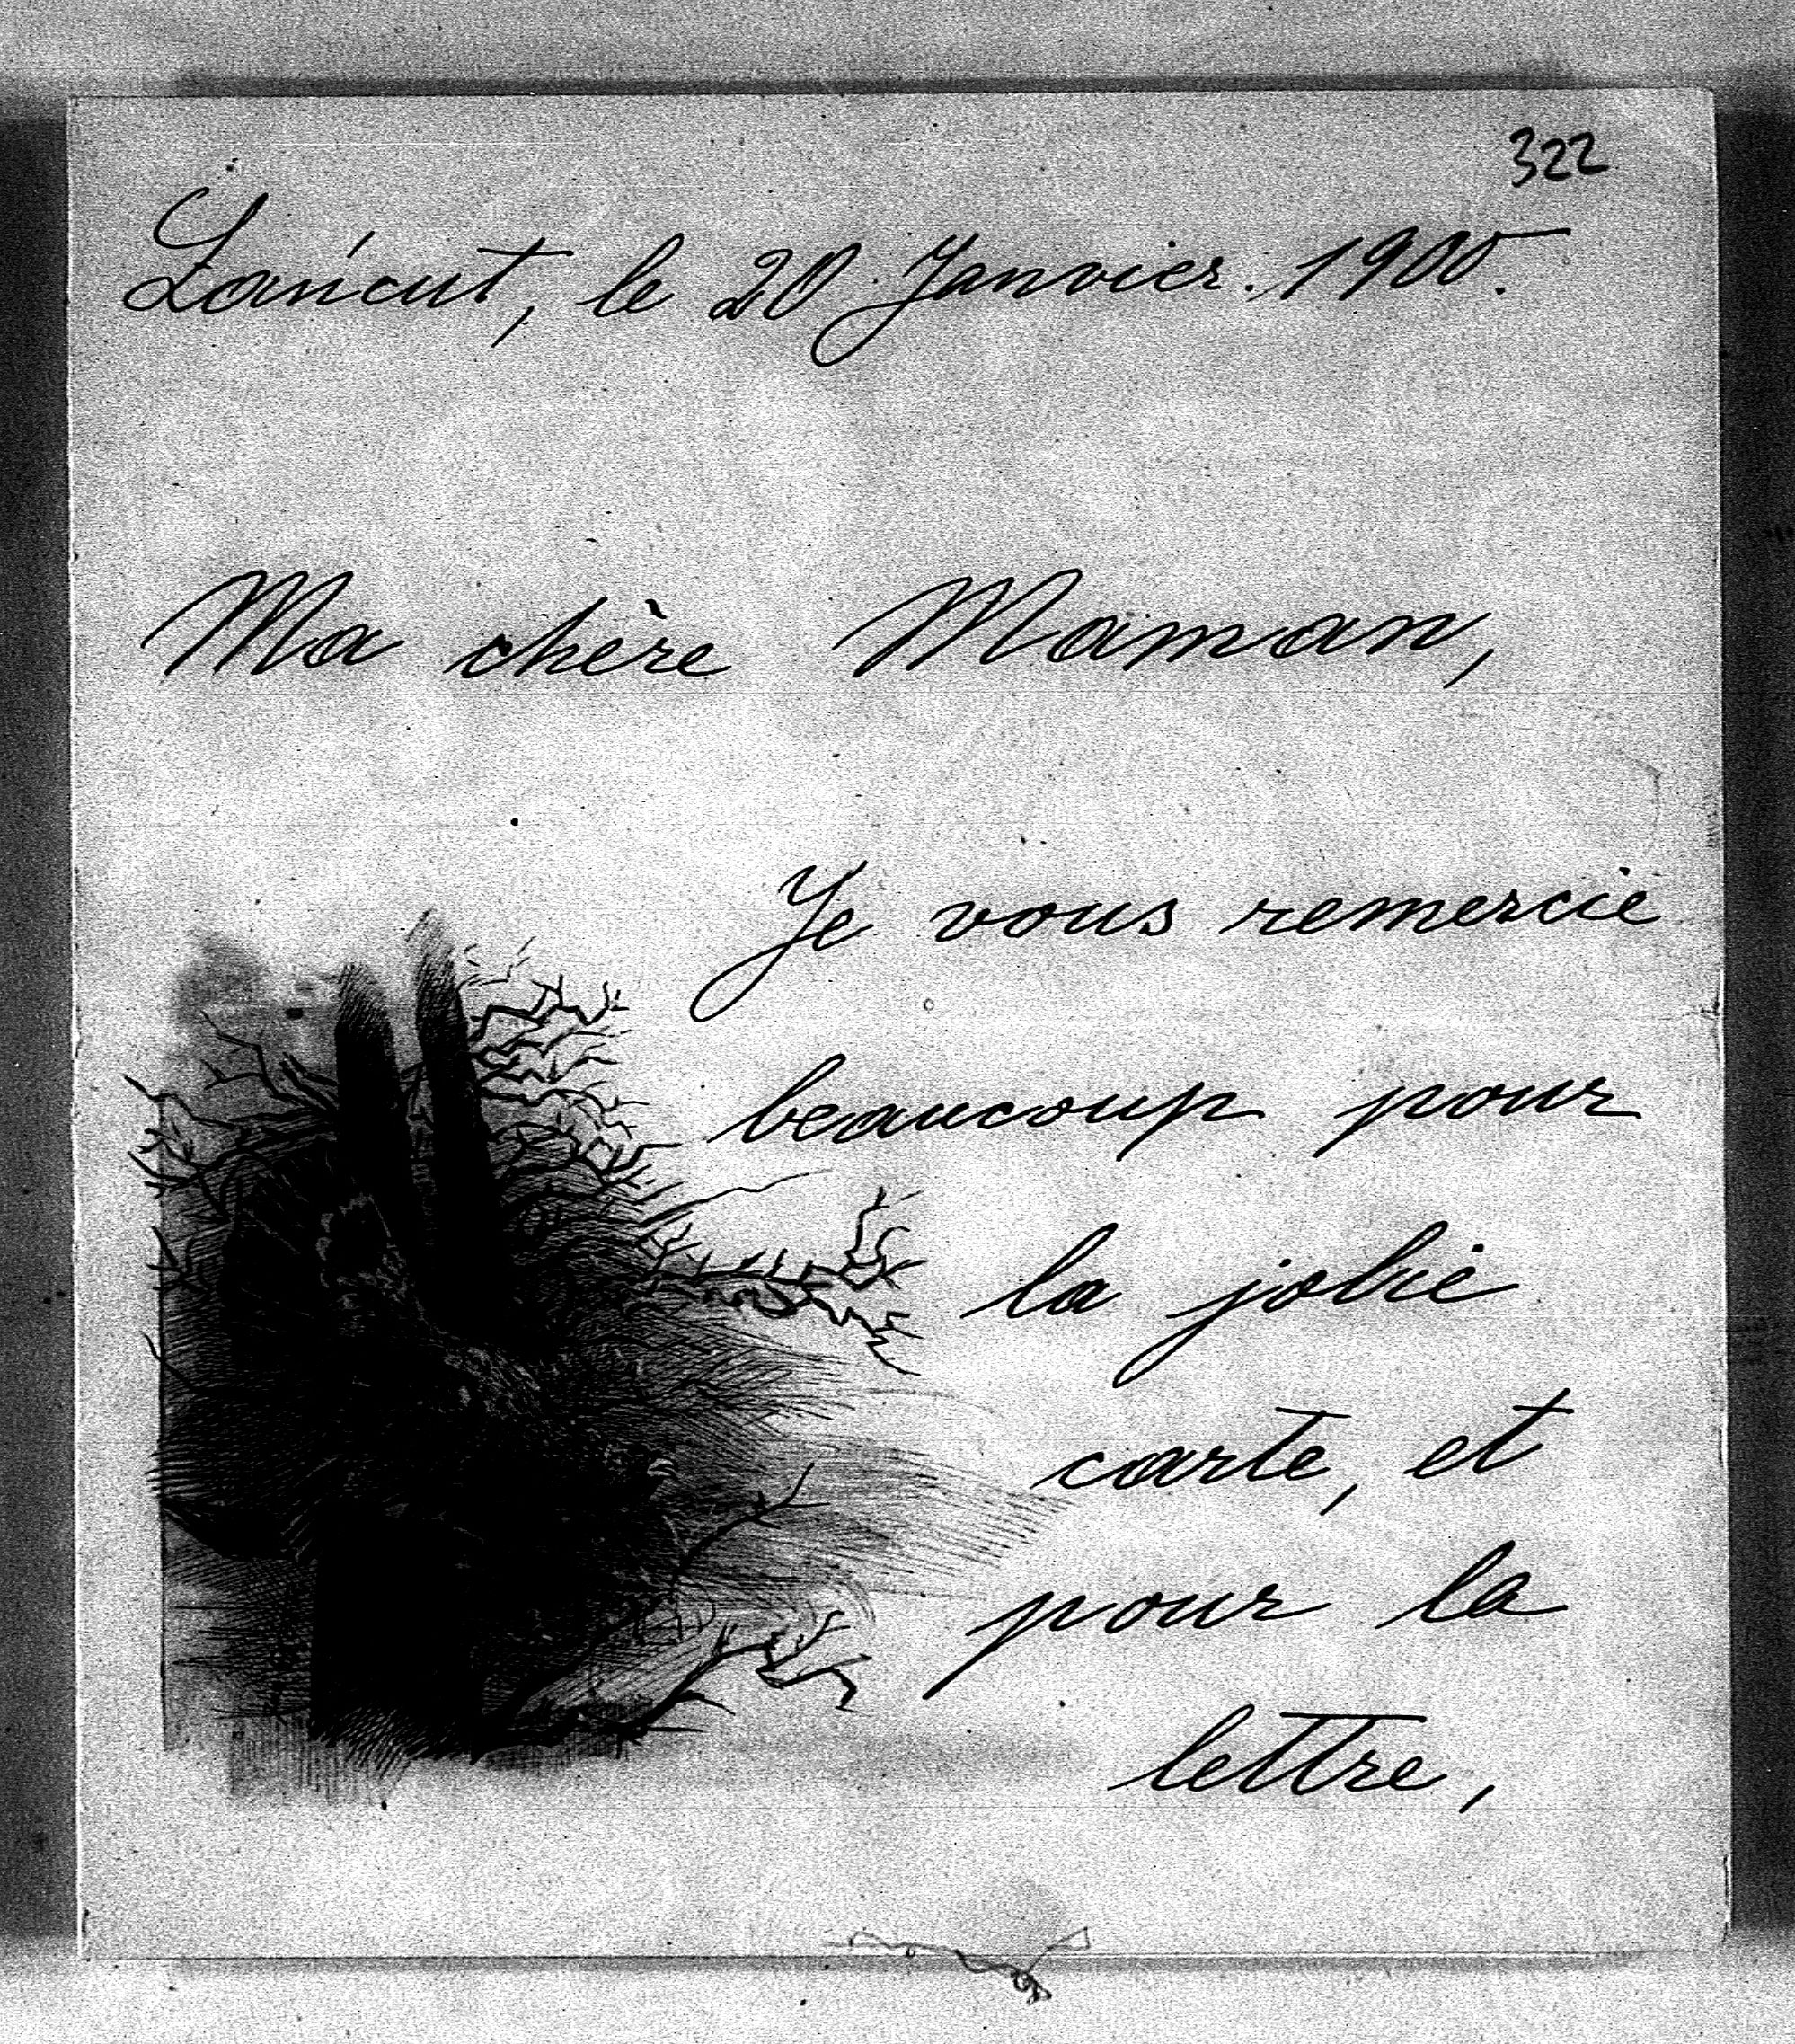 322
Łańcut, le 20 Janvier. 1900.
Ma chère Maman,
Je vous remercie
beaucoup pour
la jolie
carte, et
pour la
lettre,